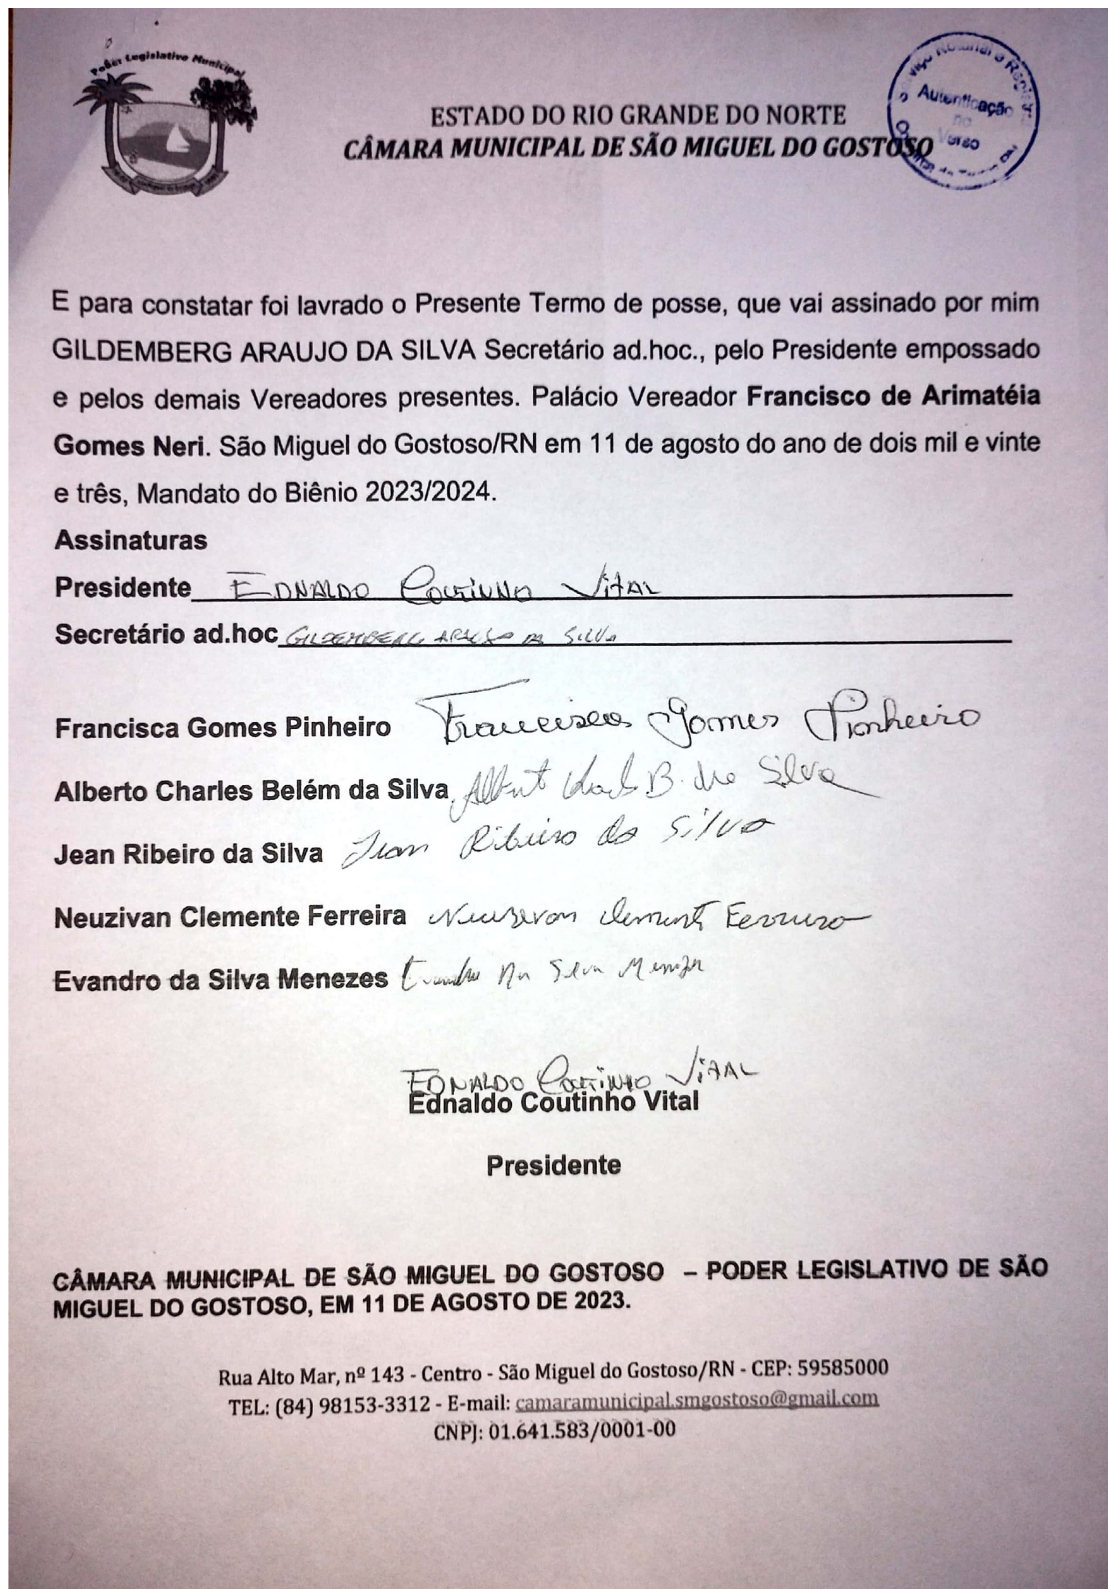 Poder Legislativo Municipal
Autenticação
no
Verso
ESTADO DO RIO GRANDE DO NORTE
CÂMARA MUNICIPAL DE SÃO MIGUEL DO GOSTOSO
E para constatar foi lavrado o Presente Termo de posse, que vai assinado por mim
GILDEMBERG ARAUJO DA SILVA Secretário ad.hoc., pelo Presidente empossado
e pelos demais Vereadores presentes. Palácio Vereador Francisco de Arimatéia
Gomes Neri. São Miguel do Gostoso/RN em 11 de agosto do ano de dois mil e vinte
e três, Mandato do Biênio 2023/2024.
Assinaturas
Presidente EDNALDO COUTINHO VITAL
Secretário ad.hoc GILDEMBERG ARAUJO DA SILVA
Francisca Gomes Pinheiro Francisca Gomes Pinheiro
Alberto Charles Belém da Silva Albert Charls B. da Silva
Jean Ribeiro da Silva Jean Ribeiro da Silva
Neuzivan Clemente Ferreira Neuzivan Clemente Ferreira
Evandro da Silva Menezes Evandro da Silva Menezes
EDNALDO COUTINHO VITAL
Ednaldo Coutinho Vital
Presidente
CÂMARA MUNICIPAL DE SÃO MIGUEL DO GOSTOSO – PODER LEGISLATIVO DE SÃO
MIGUEL DO GOSTOSO, EM 11 DE AGOSTO DE 2023.
Rua Alto Mar, nº 143 - Centro - São Miguel do Gostoso/RN - CEP: 59585000
TEL: (84) 98153-3312 - E-mail: camaramunicipal.smgostoso@gmail.com
CNPJ: 01.641.583/0001-00